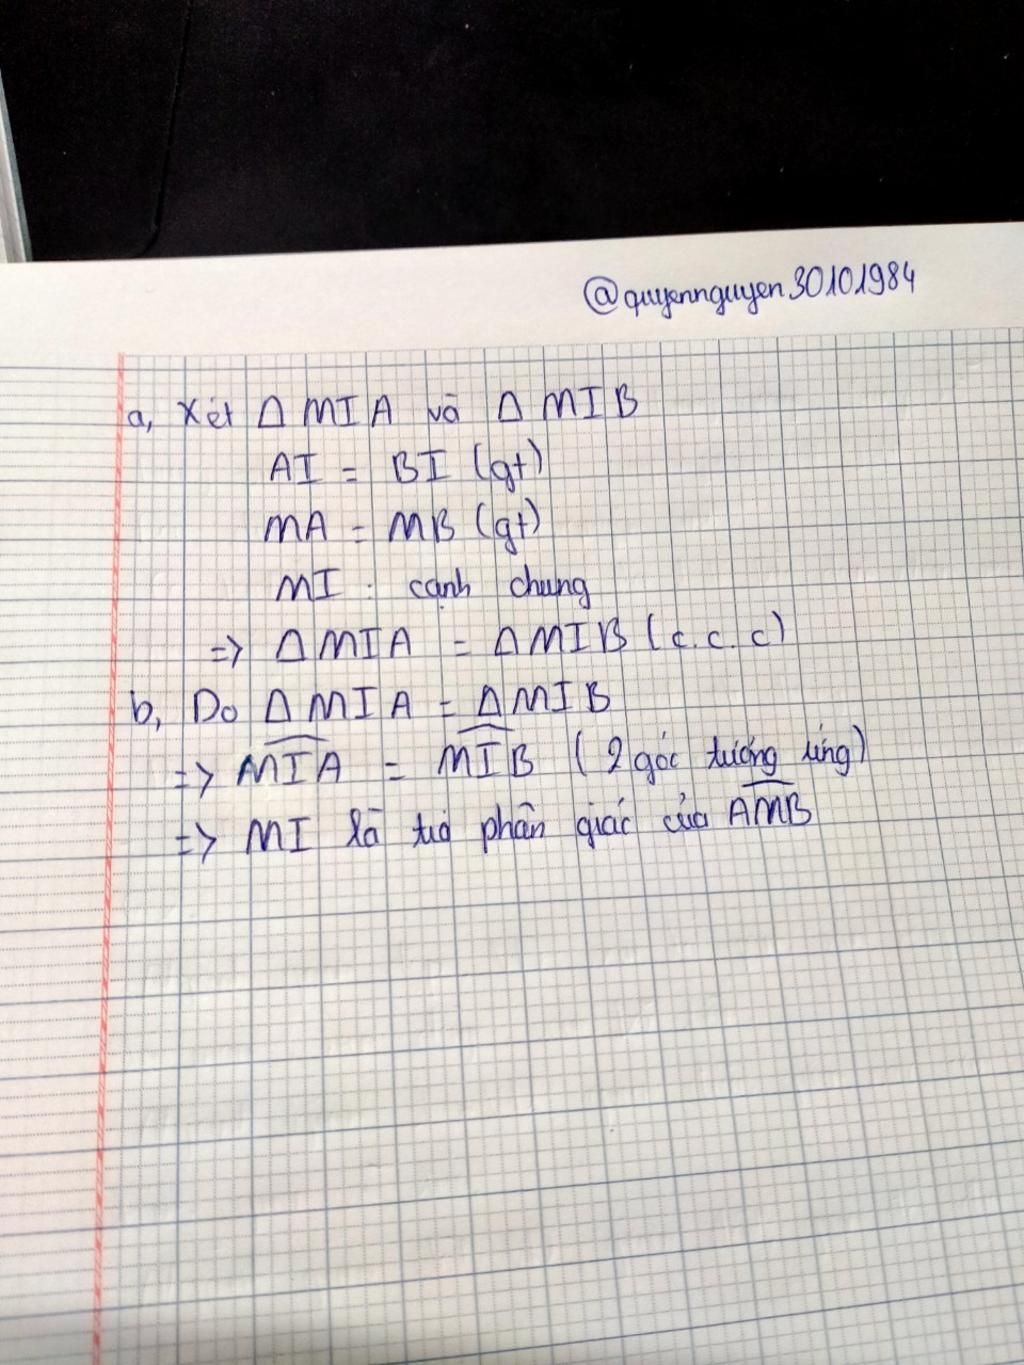 @quyennguyen30101984
a, Xét Δ MIA và Δ MIB
AI = BI (gt)
MA = MB (gt)
MI : cạnh chung
=> Δ MIA = Δ MIB (c.c.c)
b, Do Δ MIA = Δ MIB
=> \widehat{MIA} = \widehat{MIB} (2 góc tương ứng)
=> MI là tia phân giác của \widehat{AMB}